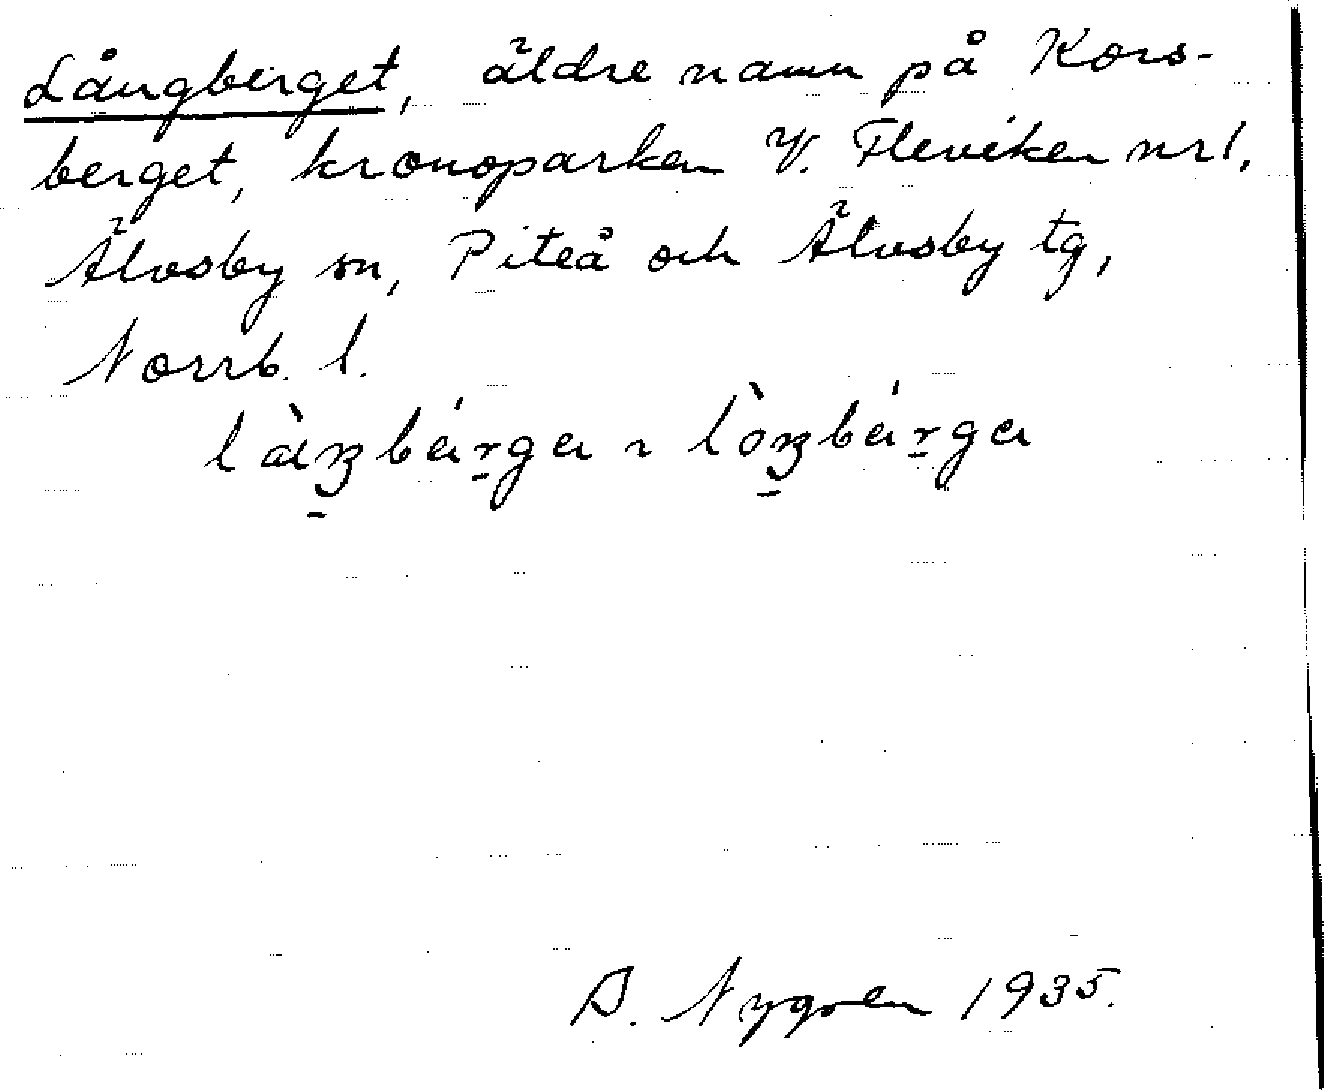 Långberget, äldre namn på Kors-
berget, kronoparken V. Fleviken nr 1,
Älvsby sn, Piteå och Älvsby tg,
Norrb. l.
B. Nygren 1935.